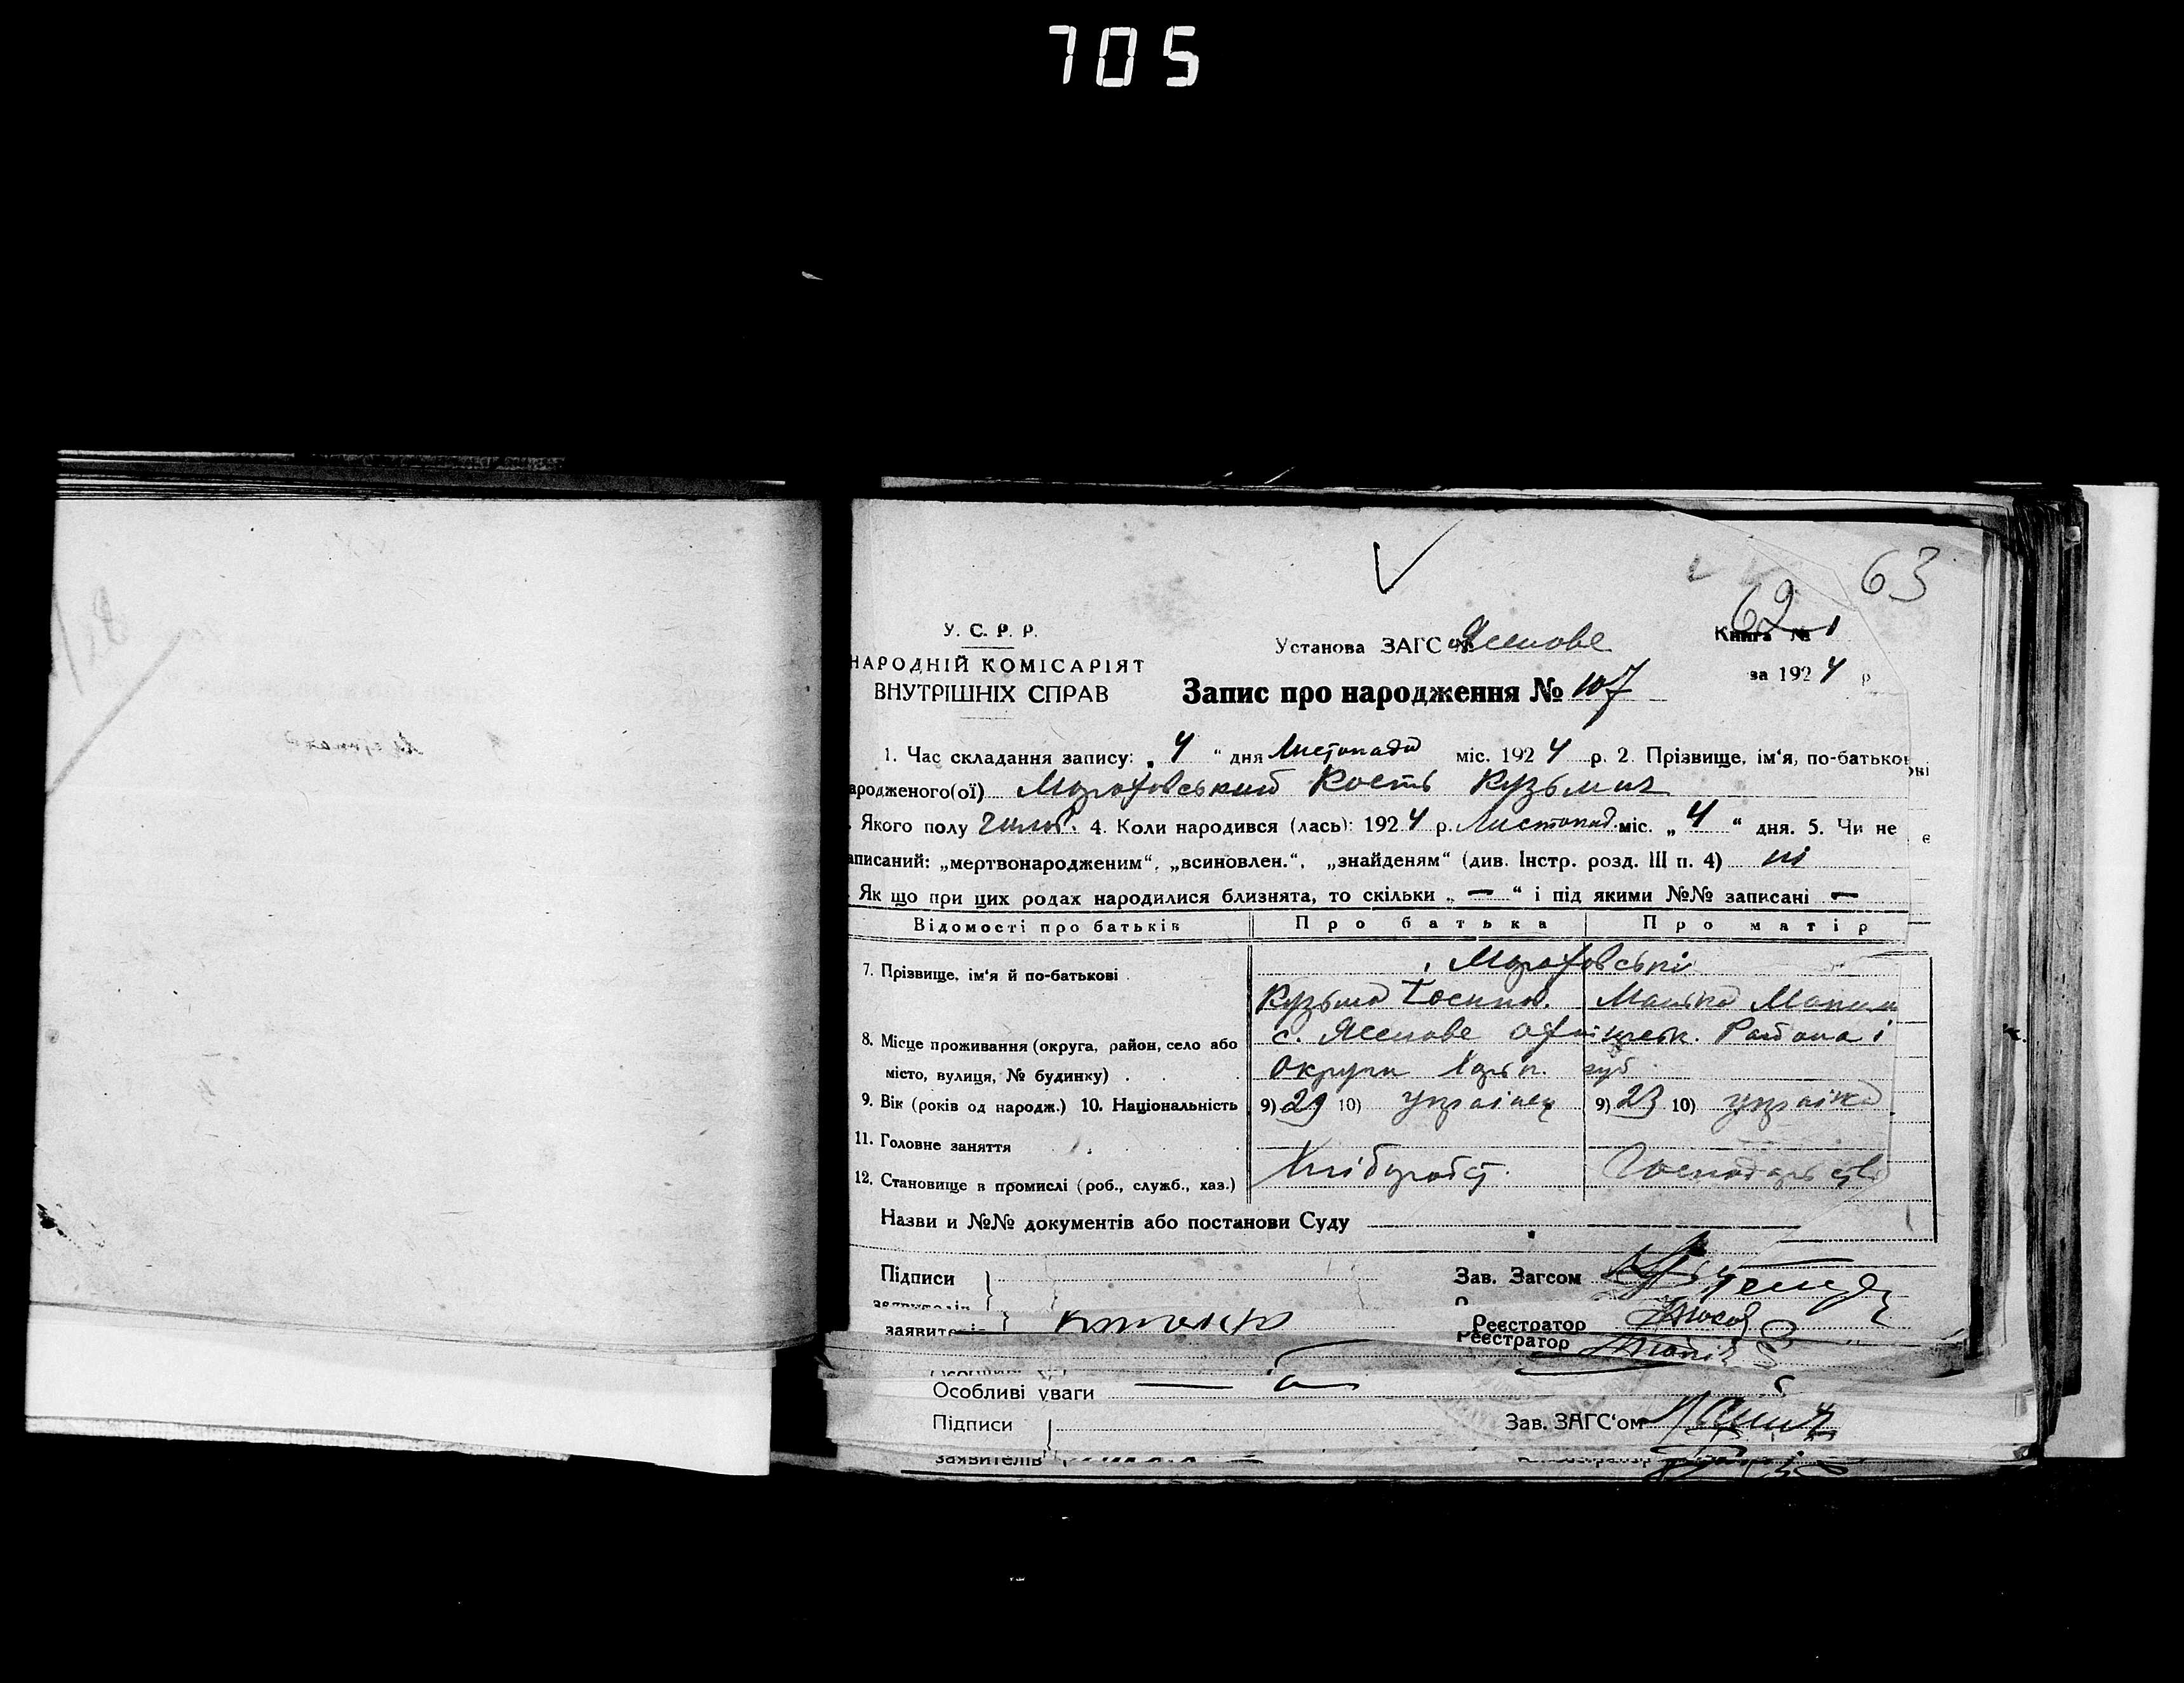 705
63
62
У. С. Р. Р.
НАРОДНІЙ КОМІСАРІЯТ
ВНУТРІШНІХ СПРАВ
Установа ЗАГС Ясенове
Книга № 1
за 1924 р
Запис про народження № 107
1. Час складання запису: „4“ дня Листопада міс. 1924 р. 2. Прізвище, ім'я, по-батькові
ародженого(ої) Кость Кузьмич
Якого полу чолов. 4. Коли народився (лась): 1924 р. Листопад міс. „4“ дня. 5. Чи не є
аписаний: „мертвонародженим“, „всиновлен.“, „знайденям“ (див. Інстр. розд. III п. 4) ні
Як що при цих родах народилися близнята, то скільки „—“ і під якими №№ записані —
Відомості про батьків Про батька Про матір
7. Прізвище, ім'я й по-батькові
Кузьма
8. Місце проживання (округа, район, село або с. Ясенове Района і
місто, вулиця, № будинку) Округи губ
9. Вік (років од народж.) 10. Національність 9) 29 10) українец 9) 23 10) українка
11. Головне заняття
12. Становище в промислі (роб., служб., хаз.) Хлібороб Господарство
Назви и №№ документів або постанови Суду
Підписи Зав. Загсом
заявителів
Реєстратор
Реєстратор
Особливі уваги —
Підписи Зав. ЗАГС'ом
заявителів